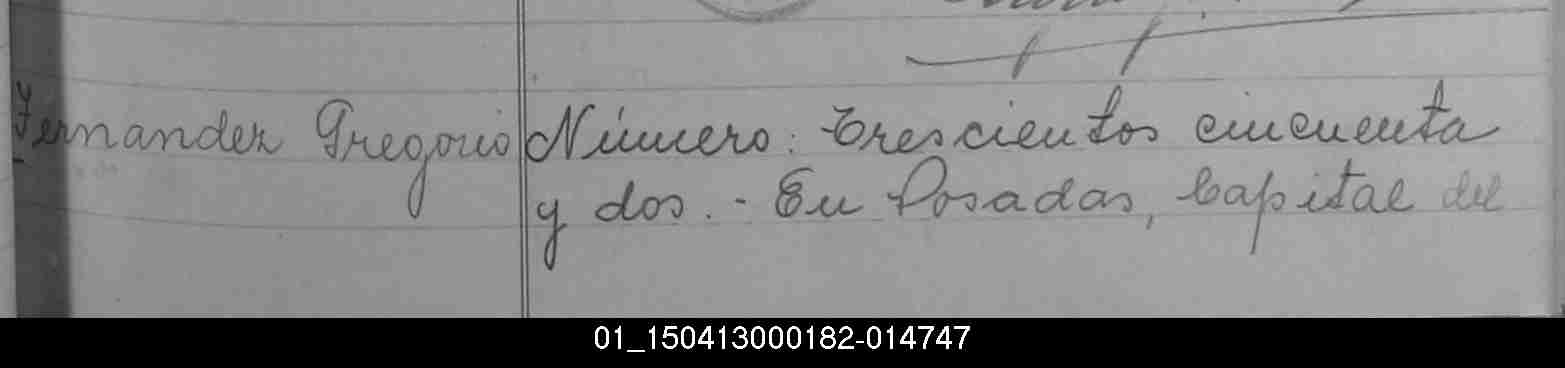 Fernandez Gregorio
Número: Trescientos cincuenta
y dos. - En Posadas, Capital del
01_150413000182-014747